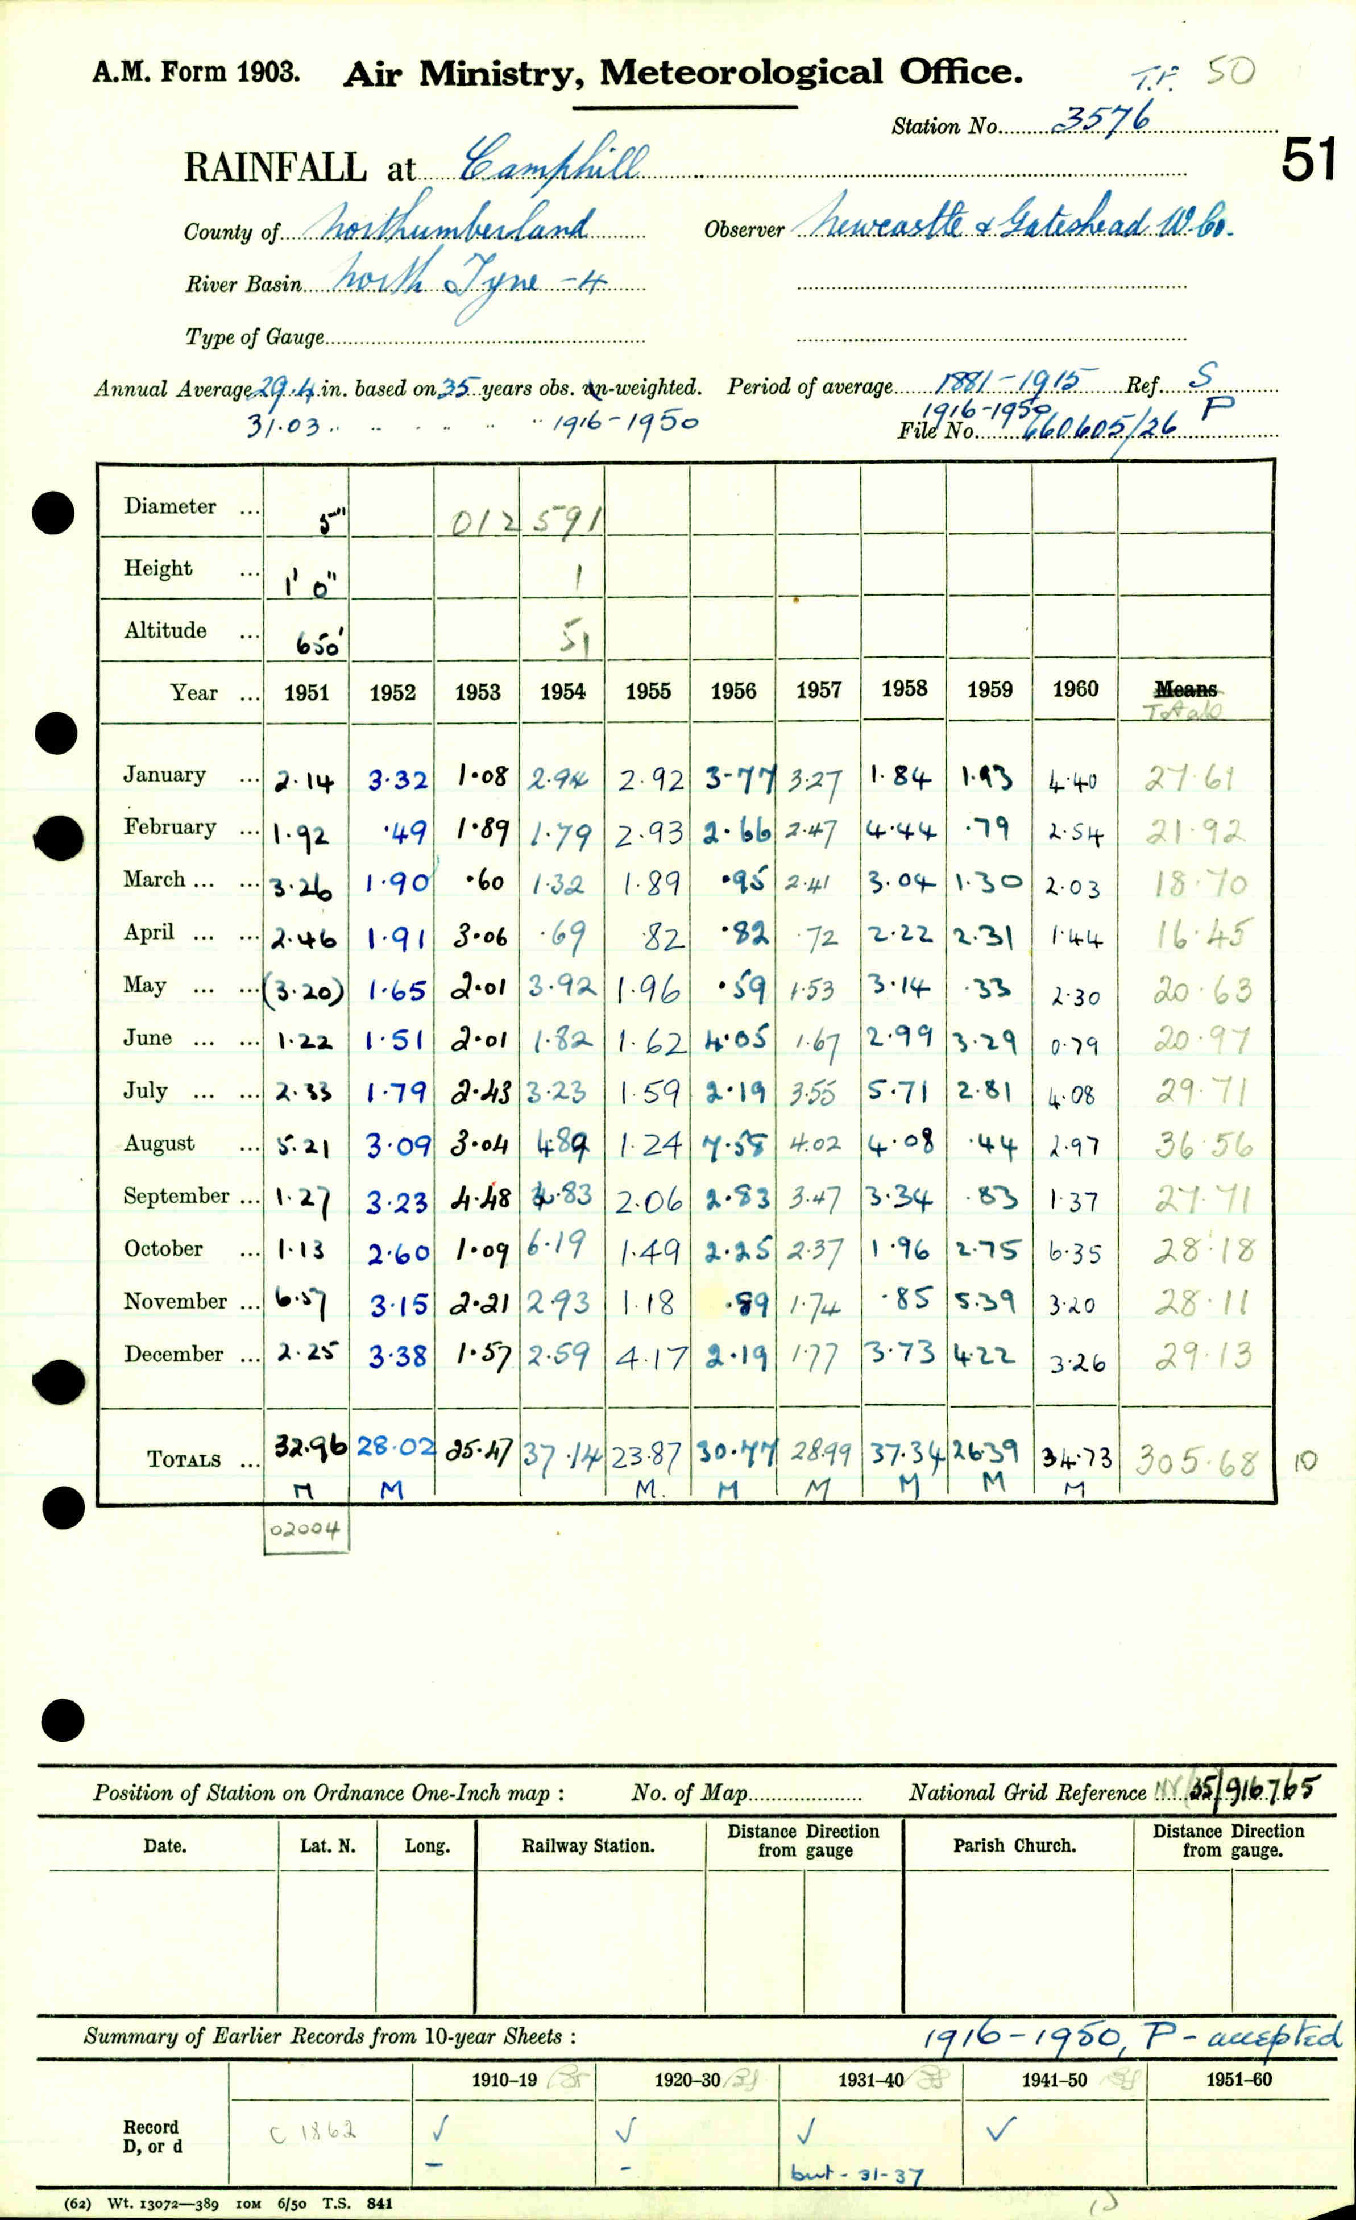 A.M. Form 1903. Air Ministry, Meteorological Office. T.F. 50
Station No. 3576
51
RAINFALL at Camphill
County of Northumberland Observer Newcastle & Gateshead W. Co.
River Basin North Tyne - 4
Type of Gauge
Annual Average 29.4 in. based on 35 years obs. un-weighted. Period of average 1881-1915 Ref. S
31.03 " " " " " 1916-1950 1916-1950 P
File No. 660605/26
Diameter ... 5" 012 591
Height ... 1' 0" 1
Altitude ... 650' 51
Year ... 1951 1952 1953 1954 1955 1956 1957 1958 1959 1960 Means
Totals
January ... 2.14 3.32 1.08 2.94 2.92 3.77 3.27 1.84 1.93 4.40 27.61
February ... 1.92 .49 1.89 1.79 2.93 2.66 2.47 4.44 .79 2.54 21.92
March ... ... 3.26 1.90 .60 1.32 1.89 .95 2.41 3.04 1.30 2.03 18.70
April ... ... 2.46 1.91 3.06 .69 .82 .82 .72 2.22 2.31 1.44 16.45
May ... ... (3.20) 1.65 2.01 3.92 1.96 .59 1.53 3.14 .33 2.30 20.63
June ... ... 1.22 1.51 2.01 1.82 1.62 4.05 1.67 2.99 3.29 0.79 20.97
July ... ... 2.33 1.79 2.43 3.23 1.59 2.19 3.55 5.71 2.81 4.08 29.71
August ... 5.21 3.09 3.04 4.89 1.24 7.58 4.02 4.08 .44 2.97 36.56
September ... 1.27 3.23 4.48 4.83 2.06 2.83 3.47 3.34 .83 1.37 27.71
October ... 1.13 2.60 1.09 6.19 1.49 2.25 2.37 1.96 2.75 6.35 28.18
November ... 6.57 3.15 2.21 2.93 1.18 .89 1.74 .85 5.39 3.20 28.11
December ... 2.25 3.38 1.57 2.59 4.17 2.19 1.77 3.73 4.22 3.26 29.13
TOTALS ... 32.96 28.02 25.47 37.14 23.87 30.77 28.99 37.34 26.39 34.73 305.68 10
M M M. M M M M M
02004
Position of Station on Ordnance One-Inch map : No. of Map National Grid Reference 35/916765
Date. Lat. N. Long. Railway Station. Distance from Direction gauge Parish Church. Distance from Direction gauge.
Summary of Earlier Records from 10-year Sheets : 1916-1950, P - accepted
1910–19 1920–30 1931–40 1941–50 1951–60
Record D, or d C 1862 ✓ ✓ ✓ ✓
– – but - 31-37
(62) Wt. 13072—389 10M 6/50 T.S. 841